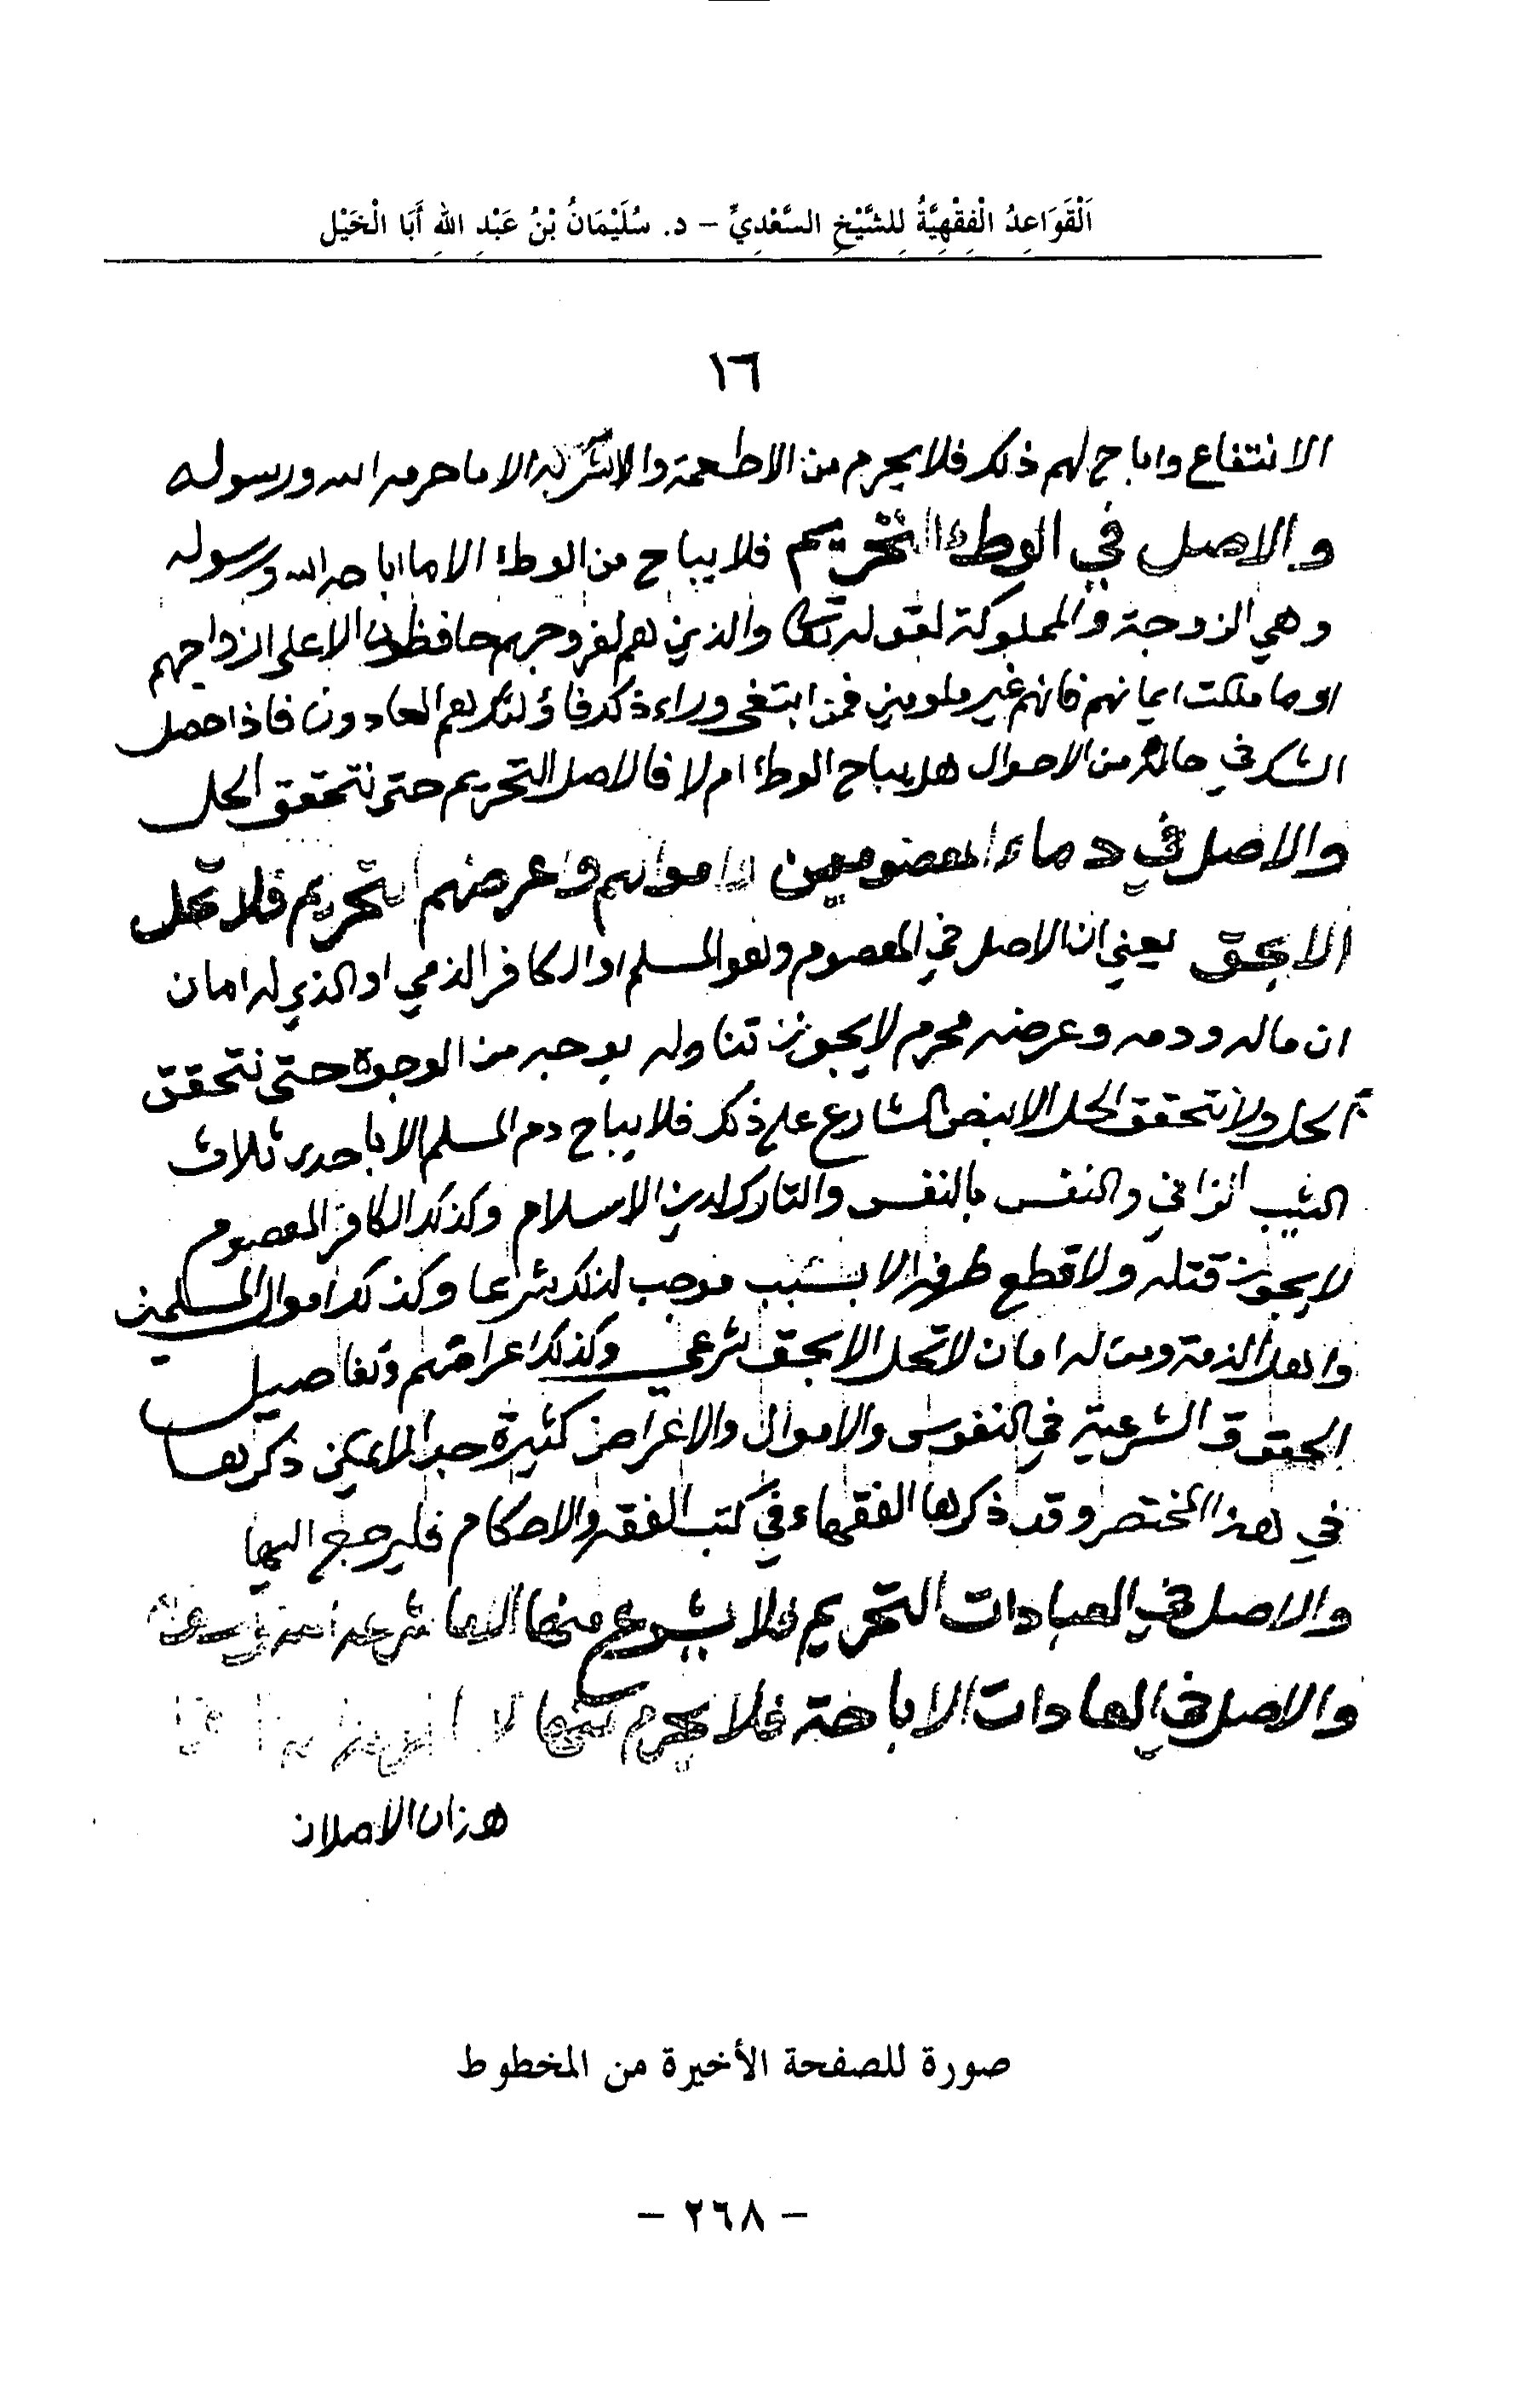 اَلْقَوَاعِدُ الْفِقْهِيَّةُ لِلشَّيْخِ السَّعْدِيِّ – د. سُلَيْمَانُ بْنُ عَبْدِ اللهِ أَبَا الْخَيْل
١٦
الانتفاع واباح لهم ذلك فلا يحرم من الاطعمة والاشربة الا ما حرمه الله ورسوله
والاصل في الوطء التحريم فلا يباح من الوطء الا ما اباحه الله ورسوله
وهي الزوجة والمملوكة لقوله تعالى والذين هم لفروجهم حافظون الا على ازواجهم
او ما ملكت ايمانهم فانهم غير ملومين فمن ابتغى وراء ذلك فاؤلئك هم العادون فاذا حصل
الشك في حالة من الاحوال هل يباح الوطء ام لا فالاصل التحريم حتى نتحقق الحل
والاصل في دماء المعصومين واموالهم واعرضهم التحريم فلا تحل
الا بحق يعني ان الاصل في المعصوم وهو المسلم او الكافر الذمي او الذي له امان
ان ماله ودمه وعرضه محرم لا يجوز تناوله بوجه من الوجوه حتى نتحقق
الحل ولا نتحقق الحل الا بنص الشارع على ذلك فلا يباح دم المسلم الا باحدى ثلاث
الثيب الزاني والنفس بالنفس والتارك لدين الاسلام وكذلك الكافر المعصوم
لا يجوز قتله ولا قطع طرفه الا بسبب موجب لذلك شرعا وكذلك اموال المسلمين
واهل الذمة ومن له امان لا تحل الا بحق شرعي وكذلك اعراضهم وتفاصيل
الحقوق الشرعية في النفوس والاموال والاعراض كثيرة جدا لا يمكن ذكرها
في هذا المختصر وقد ذكرها الفقهاء في كتب الفقه والاحكام فليرجع اليها
والاصل في العبادات التحريم فلا يشرع منها الا ما شرعه الله ورسوله
والاصل في العادات الاباحة فلا يحرم منها الا
هذان الاصلان
صورة للصفحة الأخيرة من المخطوط
– ٢٦٨ –